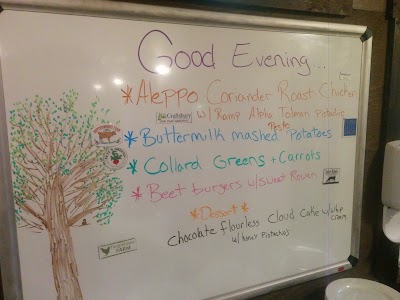 Good Evening...
*Aleppo Coriander Roast Chicken
w/ Ramp Alpha Tolman Pistachio
Pesto
*Buttermilk mashed Potatoes
*Collard Greens + Carrots
*Beet burgers w/ sweet Rowen
*Dessert*
Chocolate flourless Cloud Cake w/ whip
cream
w/ honey Pistachios
FARM